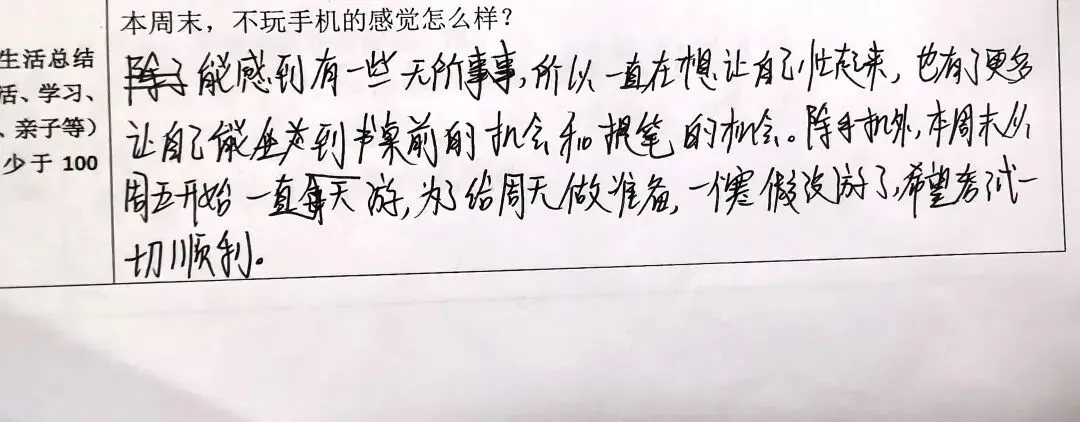 本周末，不玩手机的感觉怎么样？
生活总结
活、学习、
、亲子等）
少于 100
除了能感到有一些无所事事，所以一直在想让自己忙起来，也有了更多
让自己能坐到书桌前的机会和提笔的机会。除手机外，本周末从
周五开始一直每天游，为了给周天做准备，一个寒假没游了，希望考试一
切顺利。